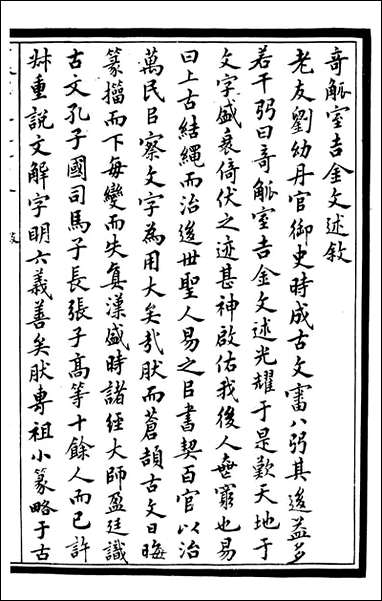 奇觚室吉金文述敘
老友劉幼丹官御史時成古文審八弜其後益多
若干弜曰奇觚室吉金文述光耀于是歎天地于
文字盛衰倚伏之迹甚神啟佑我後人無窮也易
曰上古結繩而治後世聖人易之㠯書契百官以治
萬民㠯察文字為用大矣哉肰而蒼頡古文日晦
篆籀而下每變而失真漢盛時諸經大師盈廷識
古文孔子國司馬子長張子高等十餘人而已許
尗重說文解字明六義善矣肰專祖小篆略于古